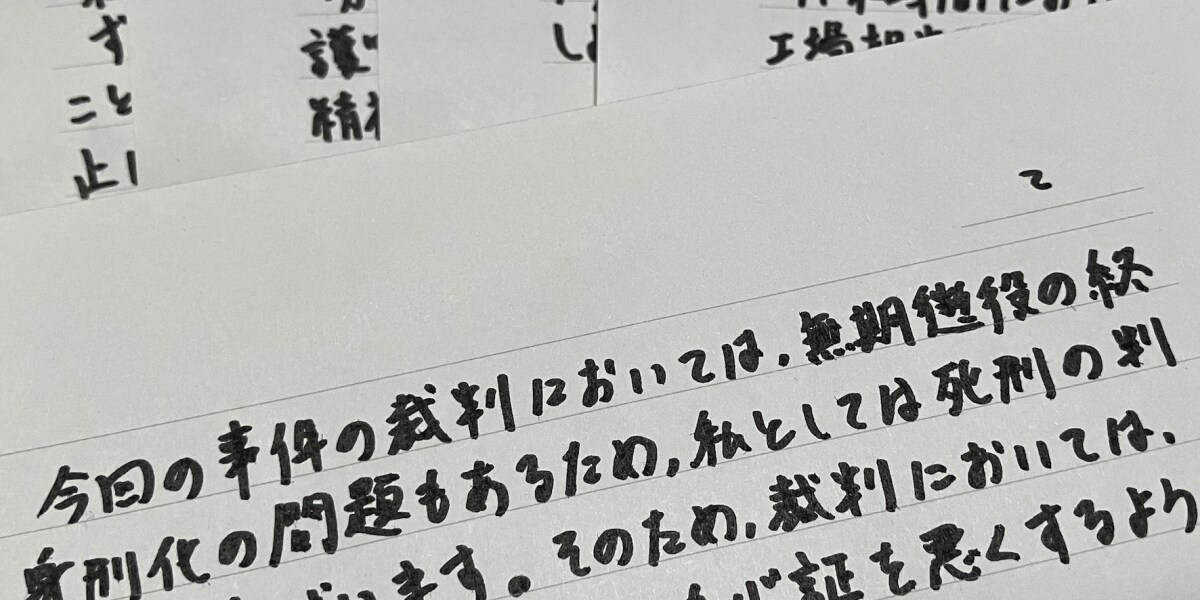 ず
こと
止
護
精
し
工場担当
2
今回の事件の裁判においては、無期懲役の終
身刑化の問題もあるため、私としては死刑の判
ます。そのため、裁判においては、
証を悪くするより